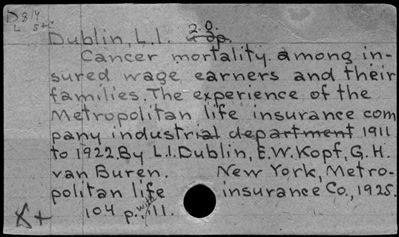 Dublin, L.I. 2 o.
Cancer mortality among in-
sured wage earners and their
families. The experience of the
Metropolitan life insurance com
pany industrial department 1911
to 1922. By L.I. Dublin, E.W. Kopf, G.H.
van Buren. New York, Metro-
politan life insurance Co., 1925.
104 p. ill.